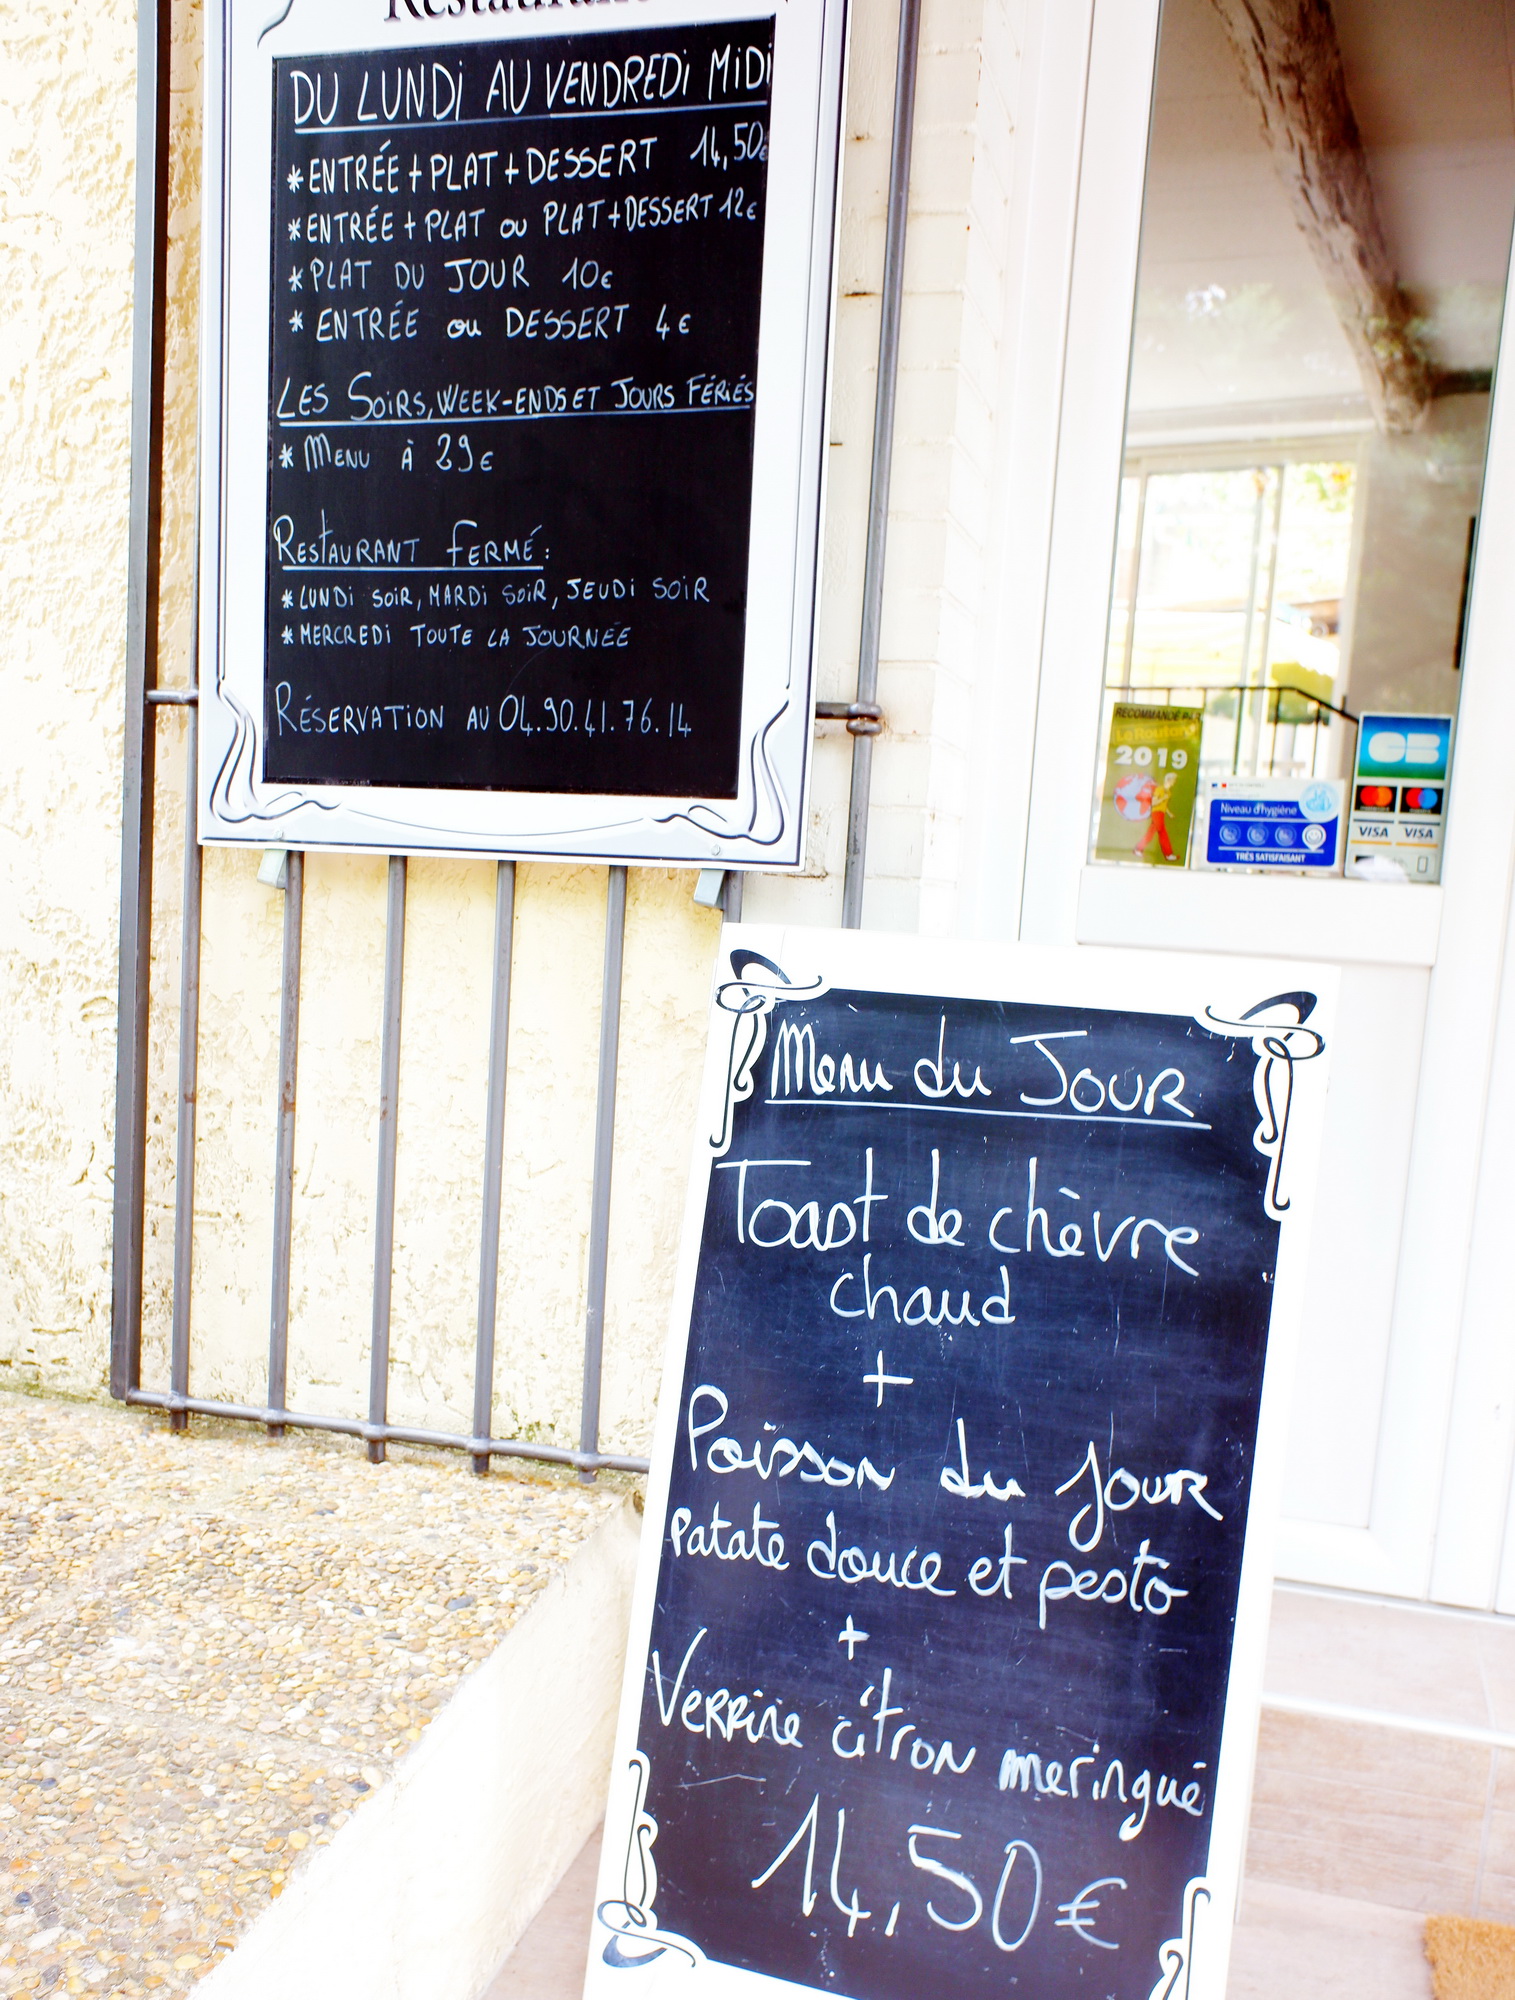 DU LUNDI AU VENDREDI MIDI
* ENTRÉE + PLAT + DESSERT 14,50€
* ENTRÉE + PLAT ou PLAT + DESSERT 12€
* PLAT DU JOUR 10€
* ENTRÉE ou DESSERT 4€
LES SOIRS, WEEK-ENDS ET JOURS FÉRIÉS
* MENU À 29€
RESTAURANT FERMÉ :
* LUNDI SOIR, MARDI SOIR, JEUDI SOIR
* MERCREDI TOUTE LA JOURNÉE
RÉSERVATION AU 04.90.41.76.14
RECOMMANDÉ PAR
Le Routard
2019
CB
Niveau d'hygiène
TRÈS SATISFAISANT
VISA VISA
Menu du JOUR
Toast de chèvre
chaud
+
Poisson du jour
Patate douce et pesto
+
Verrine citron meringué
14,50 €